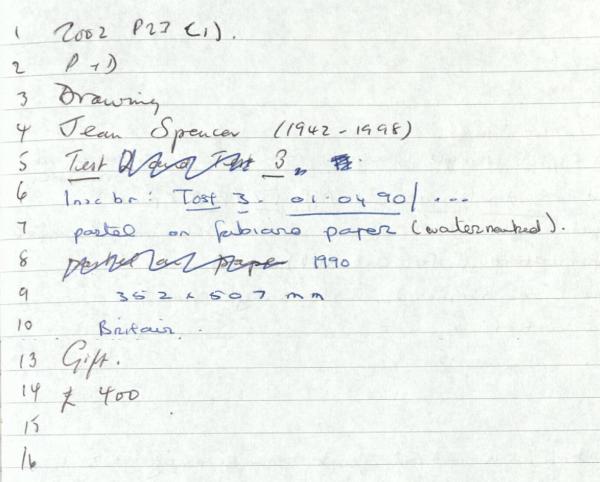 1 2002 P27 (1).
2 P+D
3 Drawing
4 Jean Spencer (1942-1998)
5 Test 3
6 Inscbr: Test 3. 01.04.90/ ...
7 pastel on fabiano paper (watermarked).
8 pastel on paper 1990
9 352 x 507 mm
10 Britain.
13 Gift.
14 £ 400
15
16